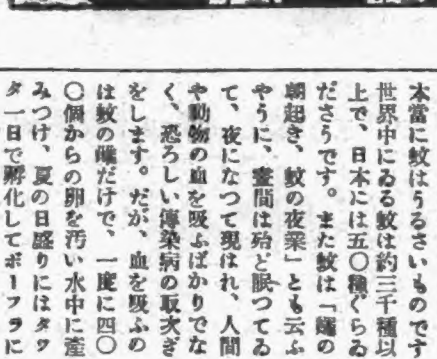 本當に蚊はうるさいものです
世界中にゐる蚊は約三千種以
上で、日本には五〇種ぐらゐ
ださうです。また蚊は「蠅の
朝起き、蚊の夜業」とも云ふ
やうに、晝間は殆ど眠つてゐ
て、夜になつて現はれ、人間
や動物の血を吸ふばかりでな
く、恐ろしい傳染病の取次ぎ
をします。だが、血を吸ふの
は蚊の雌だけで、一度に四〇
〇個からの卵を汚い水中に産
みつけ、夏の日盛りにはタツ
タ一日で孵化してボーフラに